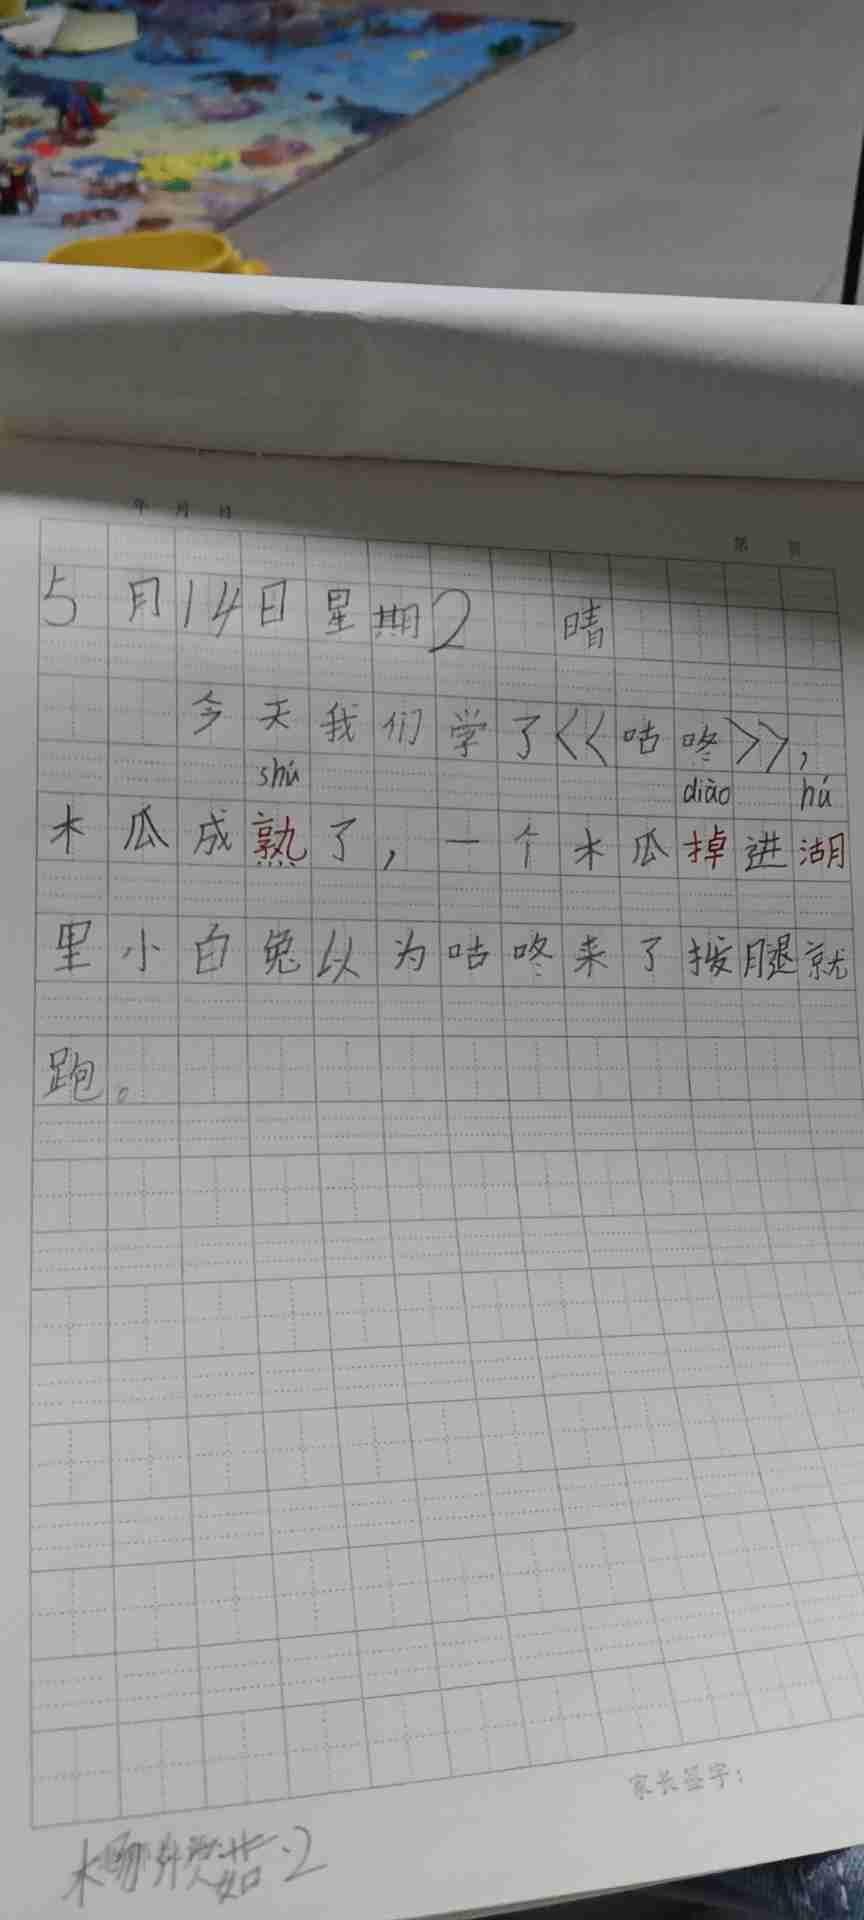 年 月 日
第 页
5月14日星期2 晴
今天我们学了<<咕咚>>，
shú diào hú
木瓜成熟了，一个木瓜掉进湖
里小白兔以为咕咚来了拔腿就
跑。
家长签字：
2